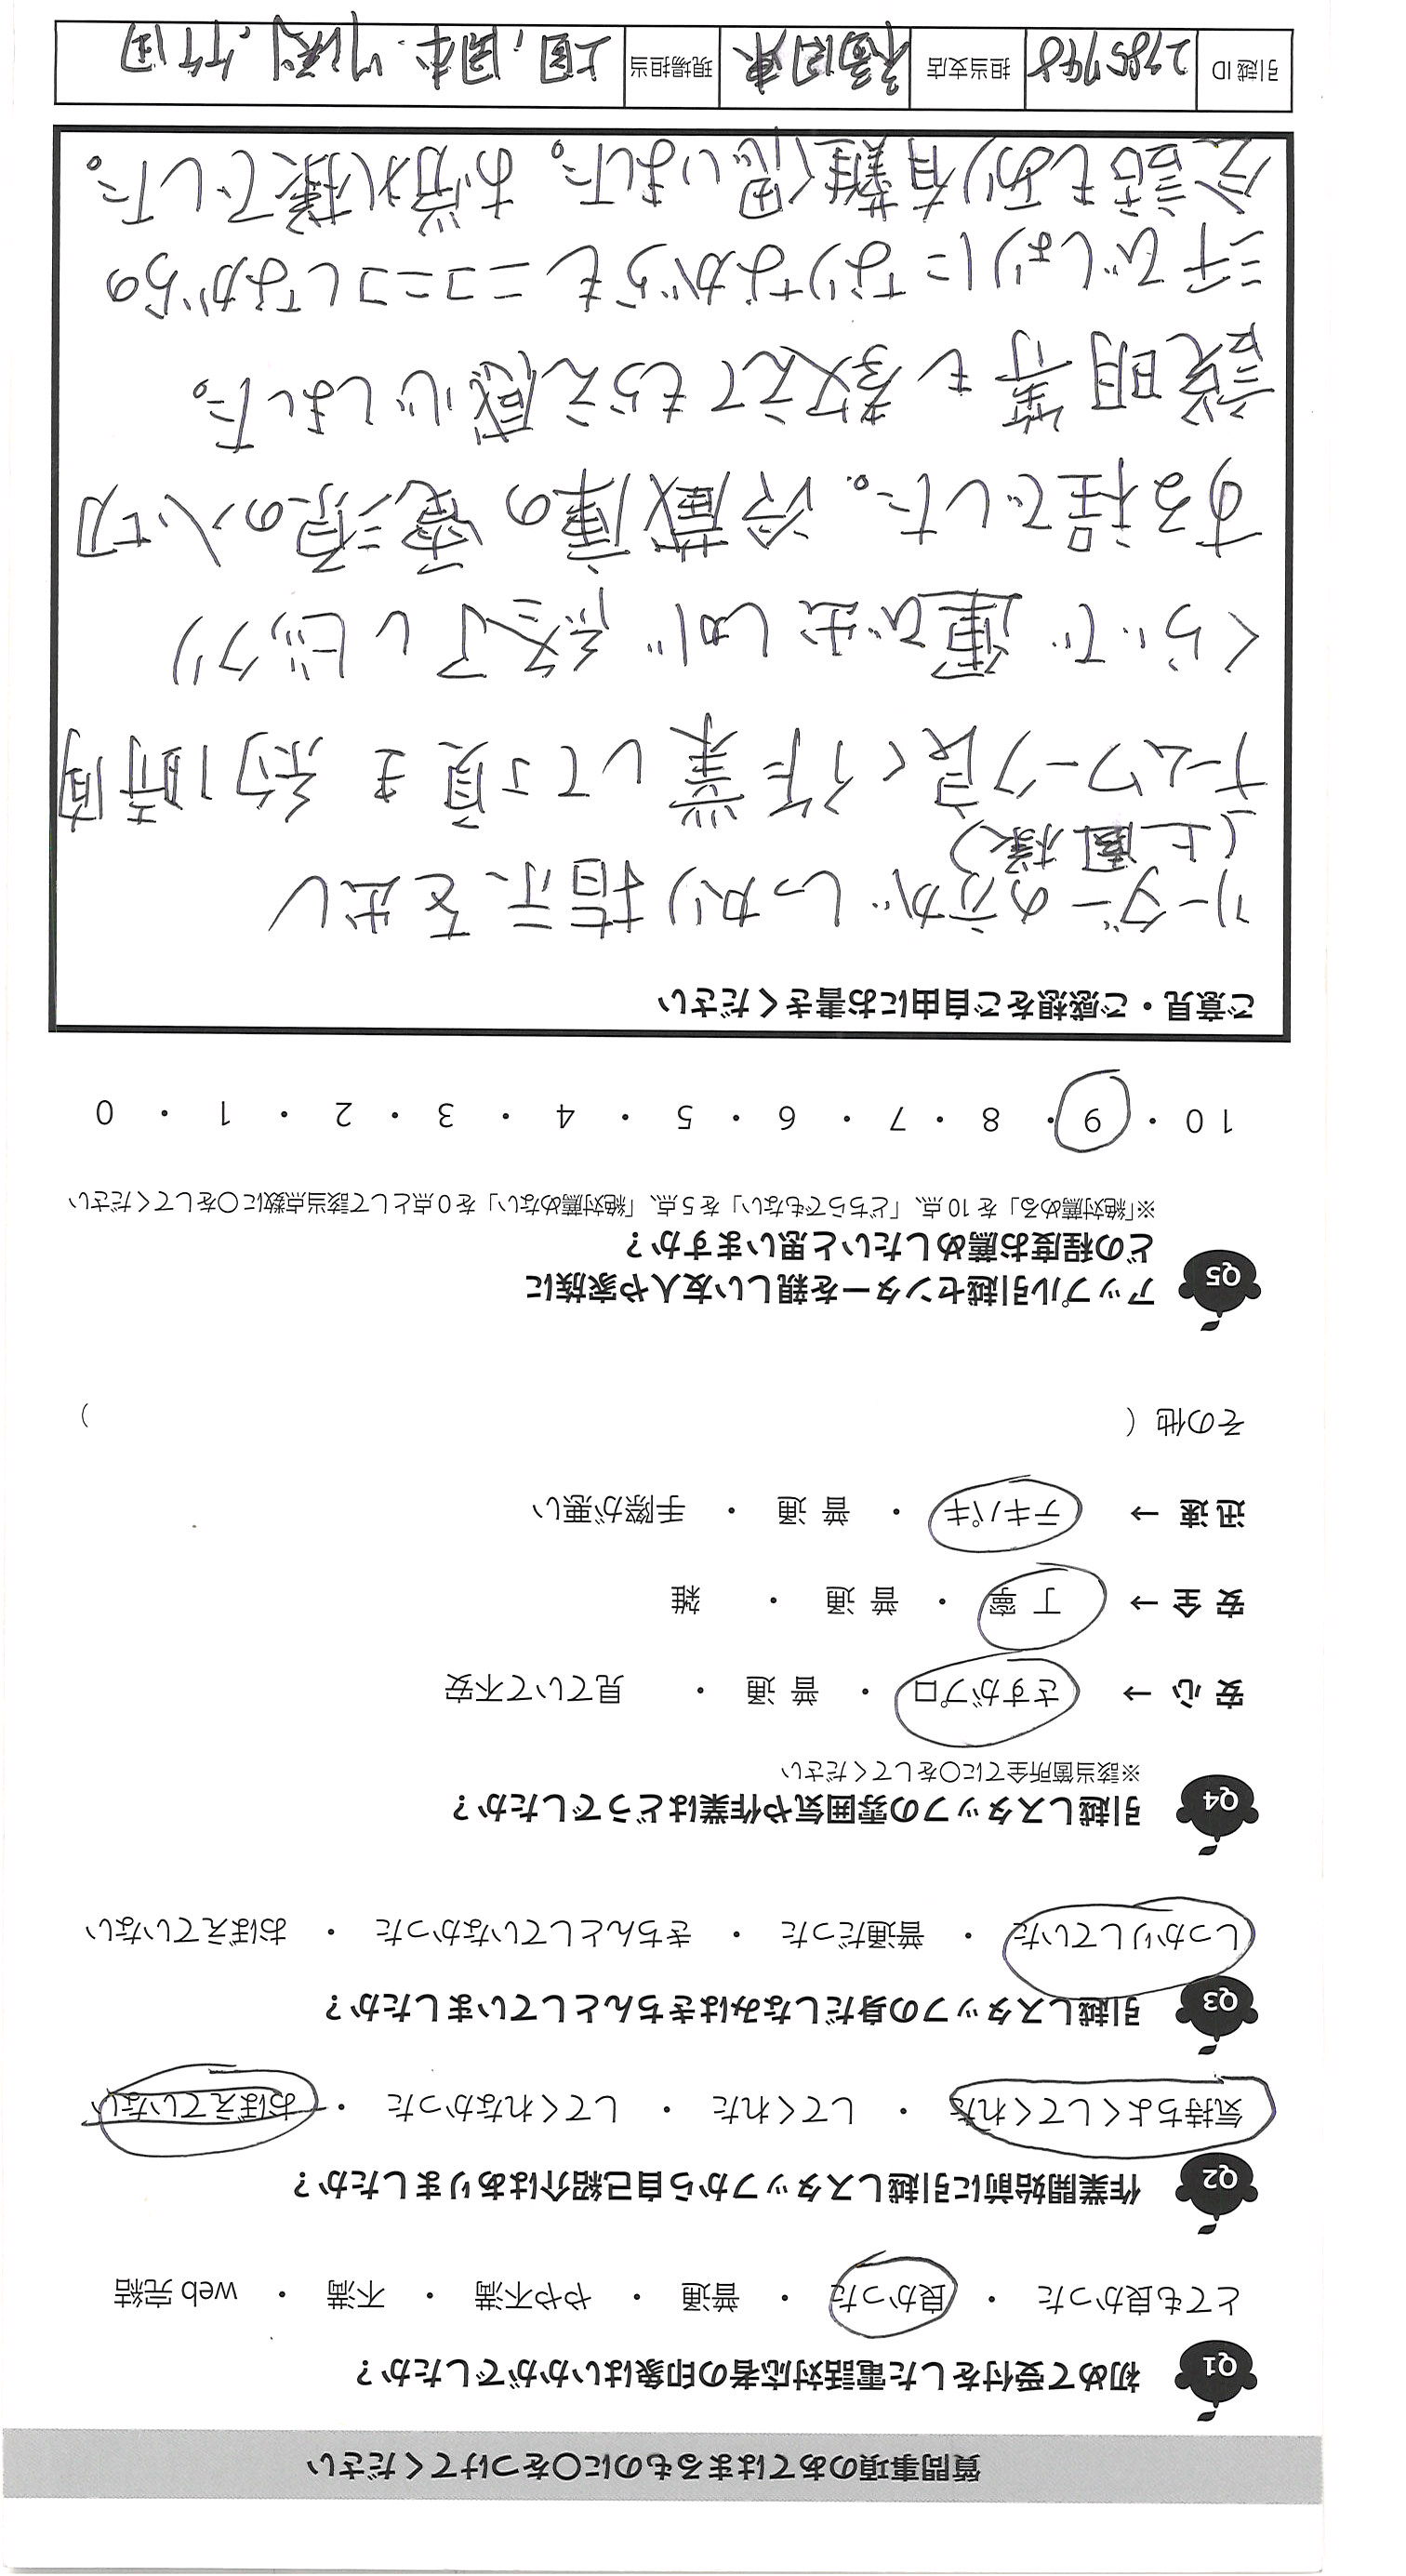 質問事項のあてはまるものに〇をつけてください
Q1 初めて受付をした電話対応者の印象はいかがでしたか？
とても良かった ・ 良かった ・ 普通 ・ やや不満 ・ 不満 ・ web 完結
Q2 作業開始前に引越しスタッフから自己紹介はありましたか？
気持ちよくしてくれた ・ してくれた ・ してくれなかった ・ おぼえていない
Q3 引越しスタッフの身だしなみはきちんとしていましたか？
しっかりしていた ・ 普通だった ・ きちんとしていなかった ・ おぼえていない
Q4 引越しスタッフの雰囲気や作業はどうでしたか？
※該当箇所全てに〇をしてください
安心 → さすがプロ ・ 普通 ・ 見ていて不安
安全 → 丁寧 ・ 普通 ・ 雑
迅速 → テキパキ ・ 普通 ・ 手際が悪い
その他（ ）
Q5 アップル引越センターを親しい友人や家族に
どの程度お薦めしたいと思いますか？
※「絶対薦める」を 10 点、「どちらでもない」を 5 点、「絶対薦めない」を 0 点として該当点数に〇をしてください
10 ・ 9 ・ 8 ・ 7 ・ 6 ・ 5 ・ 4 ・ 3 ・ 2 ・ 1 ・ 0
ご意見・ご感想をご自由にお書きください
リーダーの方がしっかり指示を出し
(上園様)
チームワーク良く作業して頂き 約1時間
くらいで運び出しが終了しビックリ
する程でした。冷蔵庫の電源の入切
説明等も教えてもらえ感心しました。
汗びしょりになりながらもニコニコしながらの
会話もあり有難く思いました。お疲れ様でした。
引越 ID 2785798 担当支店 現場担当 上園、岡本、竹田